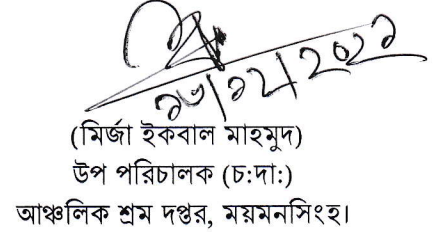 (মির্জা ইকবাল মাহমুদ)
উপ পরিচালক (চ:দা:)
আঞ্চলিক শ্রম দপ্তর, ময়মনসিংহ।